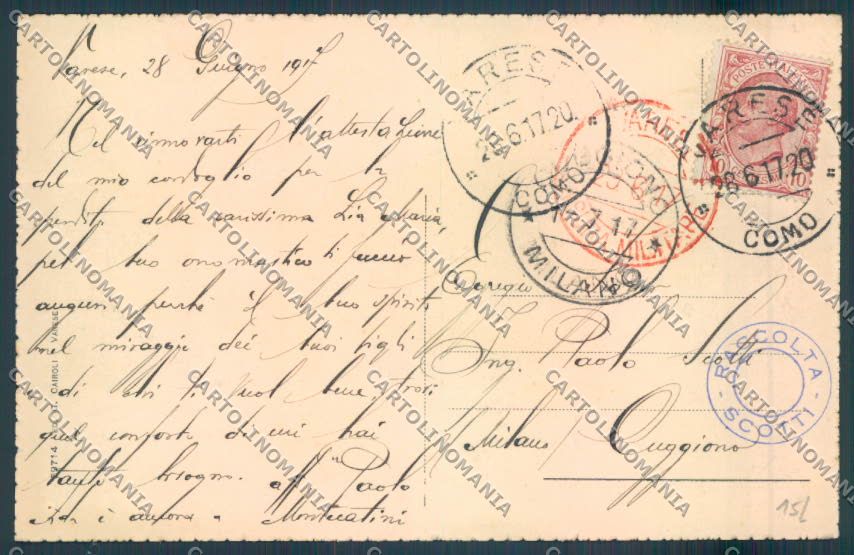 Varese, 28 Giugno 1917
Nel rinnovarti l'attestazione
del mio cordoglio per la
perdita della carissima Zia Maria,
pel tuo onomastico ti faccio
auguri perchè il tuo spirito
nel miraggio dei tuoi figli
e di chi ti vuol bene, trovi
quel conforto di cui hai
tanto bisogno. Paolo
è ancora a Montecatini
Egregio
Ing. Paolo Scotti
Milano Cuggiono
VARESE
28.6.17.20.
COMO
VARESE
28.6.17.20
COMO
POSTE ITALIANE
10
CUGGIONO
7.17
MILANO
MILITARE
RACCOLTA
SCOTTI
CAIROLI - VARESE
15/
CARTOLINOMANIA